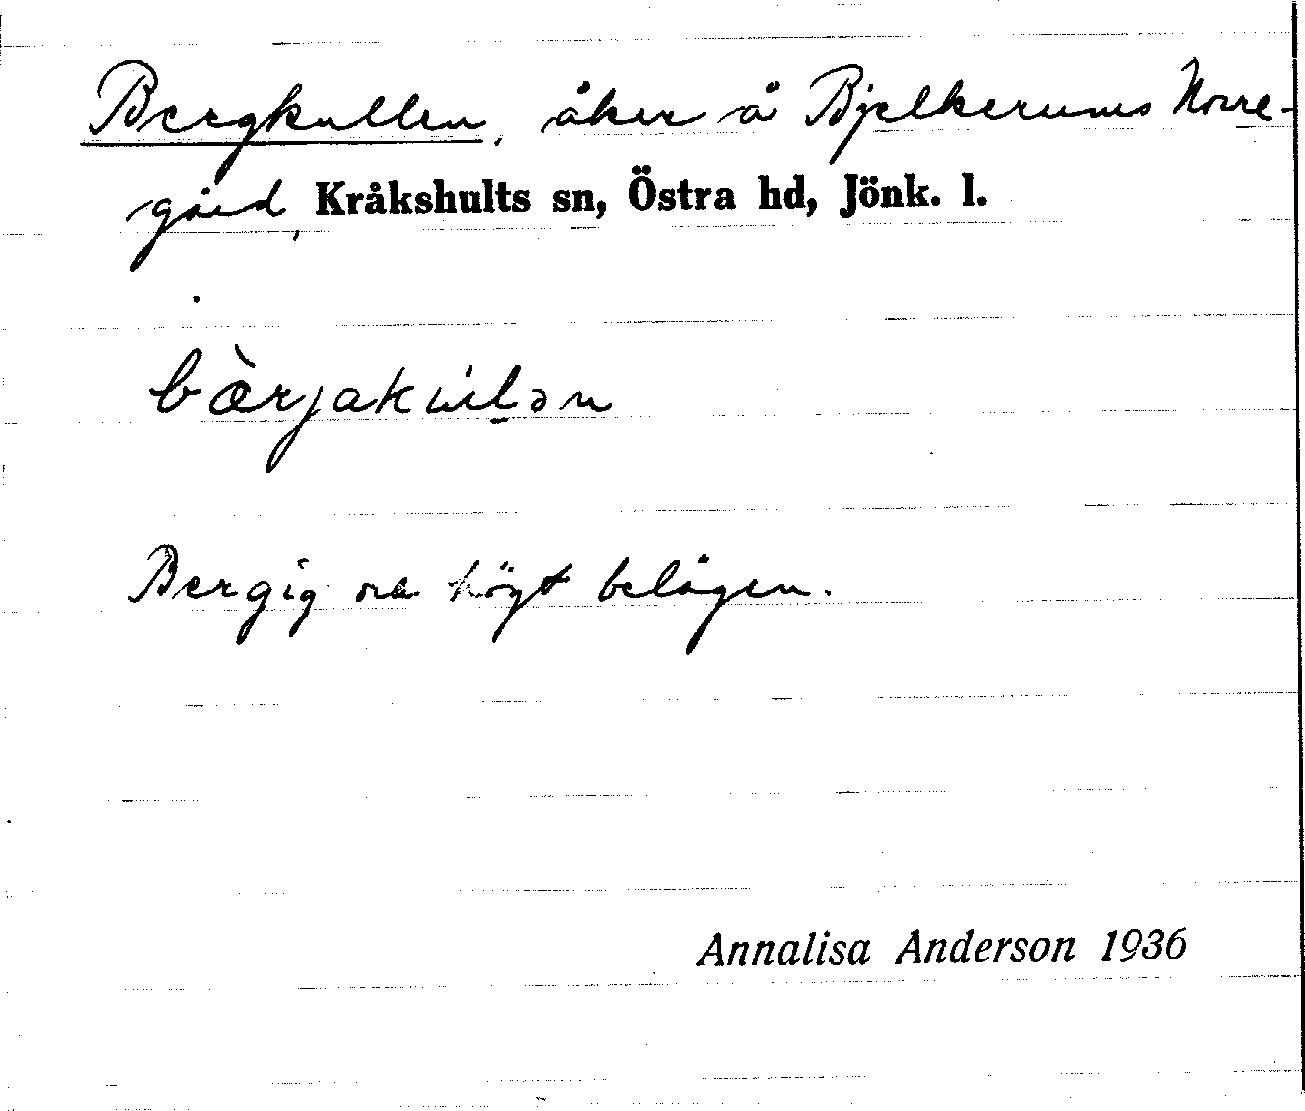 Bergkullen, åker å Bjelkerums Norre-
gård, Kråkshults sn, Östra hd, Jönk. l.
bærjakulən
Bergig och högt belägen.
Annalisa Anderson 1936